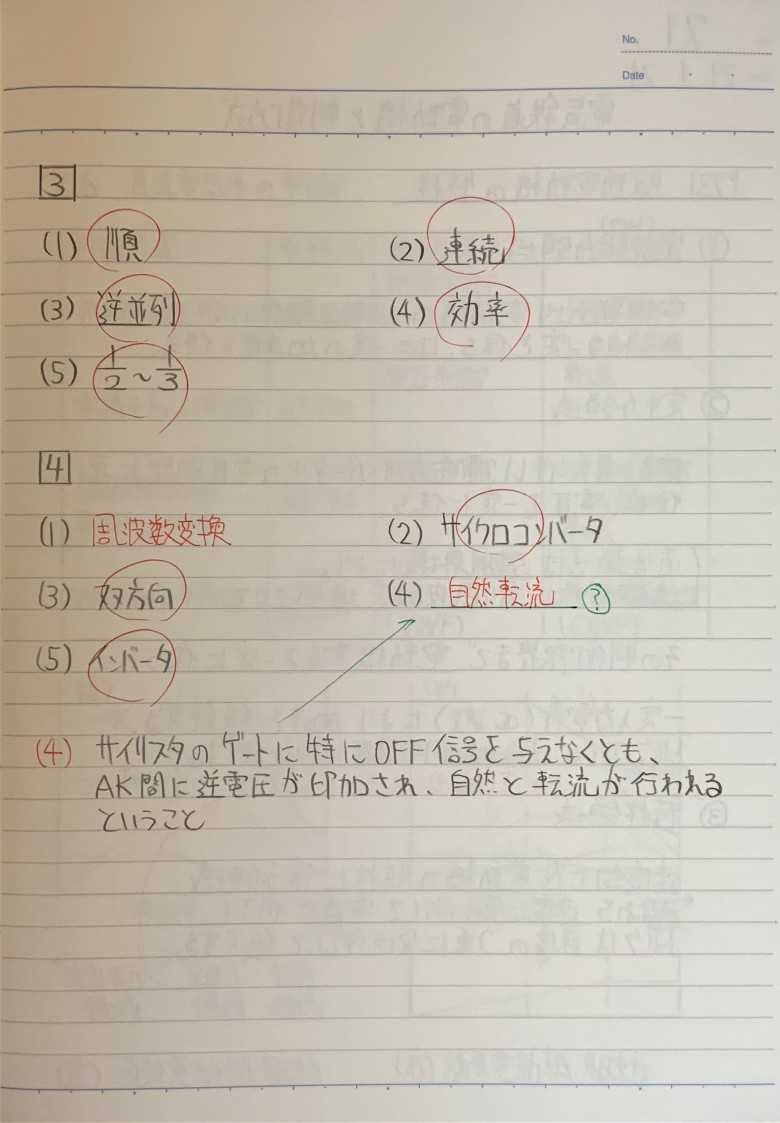 No.
Date
3
(1) 順 (2) 連続
(3) 逆並列 (4) 効率
(5) 1/2 ~ 1/3
4
(1) 周波数変換 (2) サイクロコンバータ
(3) 双方向 (4) 自然転流 ?
(5) インバータ
(4) サイリスタのゲートに特にOFF信号を与えなくとも、
AK間に逆電圧が印加され、自然と転流が行われる
ということ